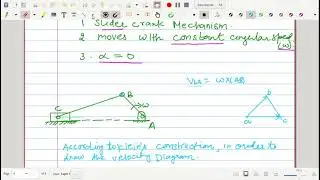 1 Slider crank Mechanism.
2 moves with constant angular speed
(ω)
3. α = 0
VBA = ω×(AB)
B
ω
C
A
b
a
c
According to klein's construction, in order to
draw the velocity Diagram.